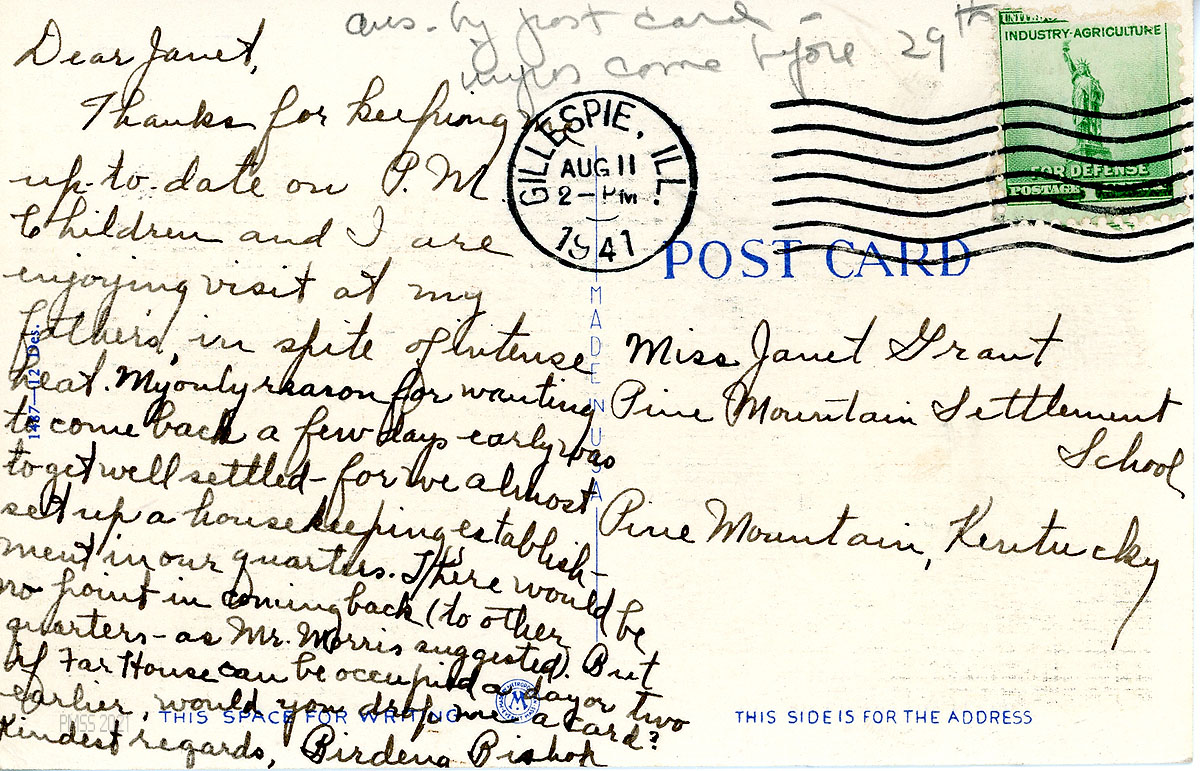 ans. by post card -
come before 29th
Dear Janet,
Thanks for keeping me
up-to-date on P.M.
Children and I are
enjoying visit at my
father's, in spite of intense
heat. My only reason for wanting
to come back a few days early was
to get well settled - for we almost
set up a housekeeping establish-
ment in our quarters. There would be
no point in coming back (to other
quarters - as Mr. Morris suggested). But
if Far House can be occupied a day or two
earlier, would you drop me a card?
Kindest regards, Birdena Bishop
GILLESPIE, ILL.
AUG 11
2 - PM
1941
INDUSTRY·AGRICULTURE
FOR DEFENSE
POSTAGE
POST CARD
MADE IN USA
Miss Janet Grant
Pine Mountain Settlement
School
Pine Mountain, Kentucky
1487—12 Des.
M
PMSS 2021
THIS SPACE FOR WRITING
THIS SIDE IS FOR THE ADDRESS